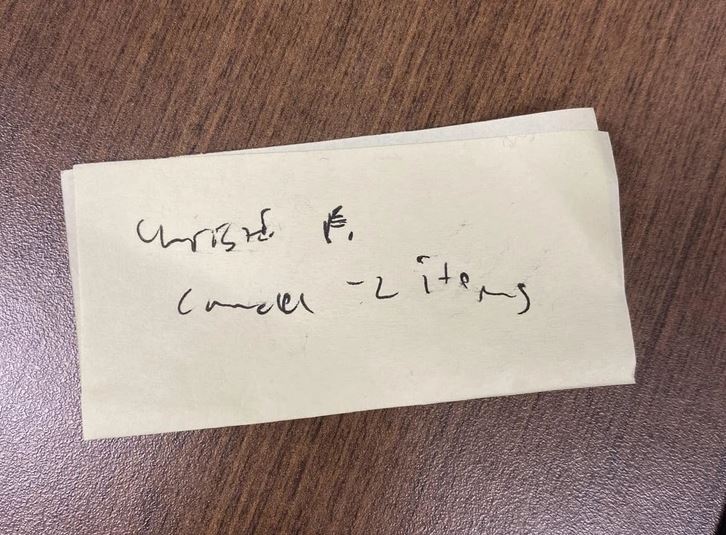 Christ E.
Cancel - 2 items